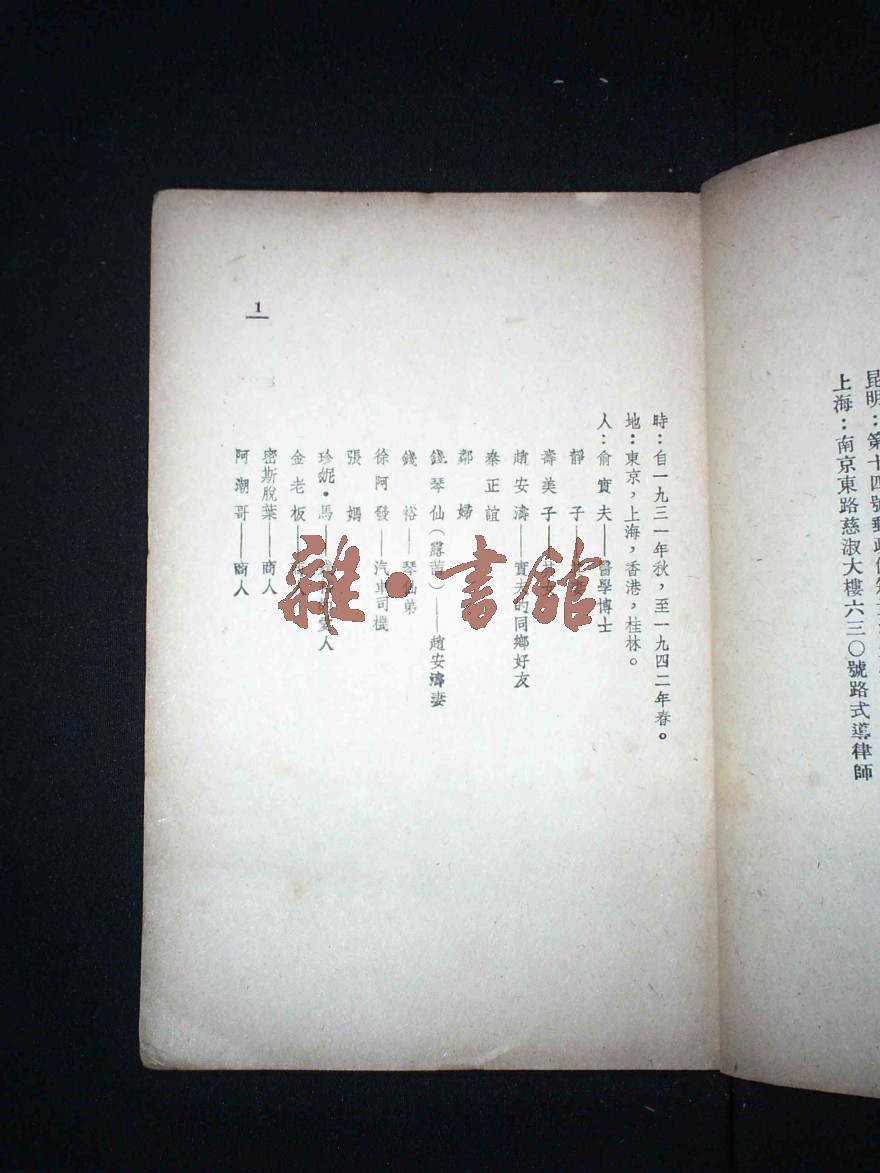 昆明：第十四號郵政信箱
上海：南京東路慈淑大樓六三〇號路式導律師
時：自一九三一年秋，至一九四二年春。
地：東京，上海，香港，桂林。
人：俞實夫——醫學博士
靜子
壽美子
趙安濤——實夫的同鄉好友
秦正誼
鄰婦
錢琴仙（露茜）——趙安濤妻
錢裕——琴仙弟
徐阿發——汽車司機
張媽
珍妮·馬 人
金老板
密斯脫葉——商人
阿潮哥——商人
1
雜·書館